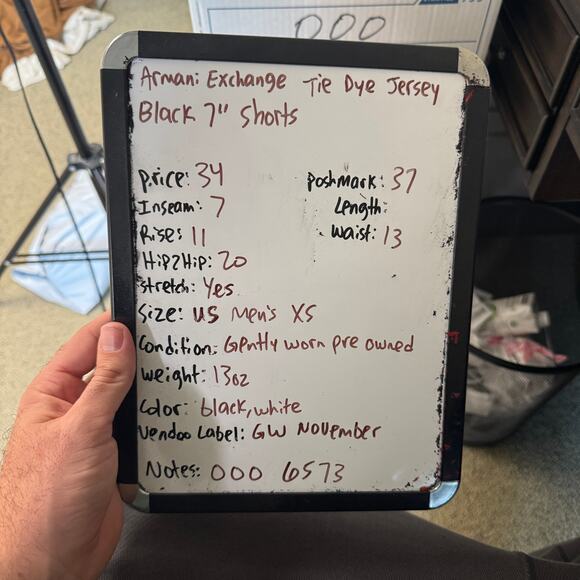 000
Armani Exchange Tie Dye Jersey
Black 7" Shorts
Price: 34
Poshmark: 37
Inseam: 7
Length:
Rise: 11
Waist: 13
Hip2Hip: 20
Stretch: Yes
Size: US Men's XS
Condition: Gently worn pre owned
Weight: 13oz
Color: black, white
Vendoo Label: GW November
Notes: 000 6573